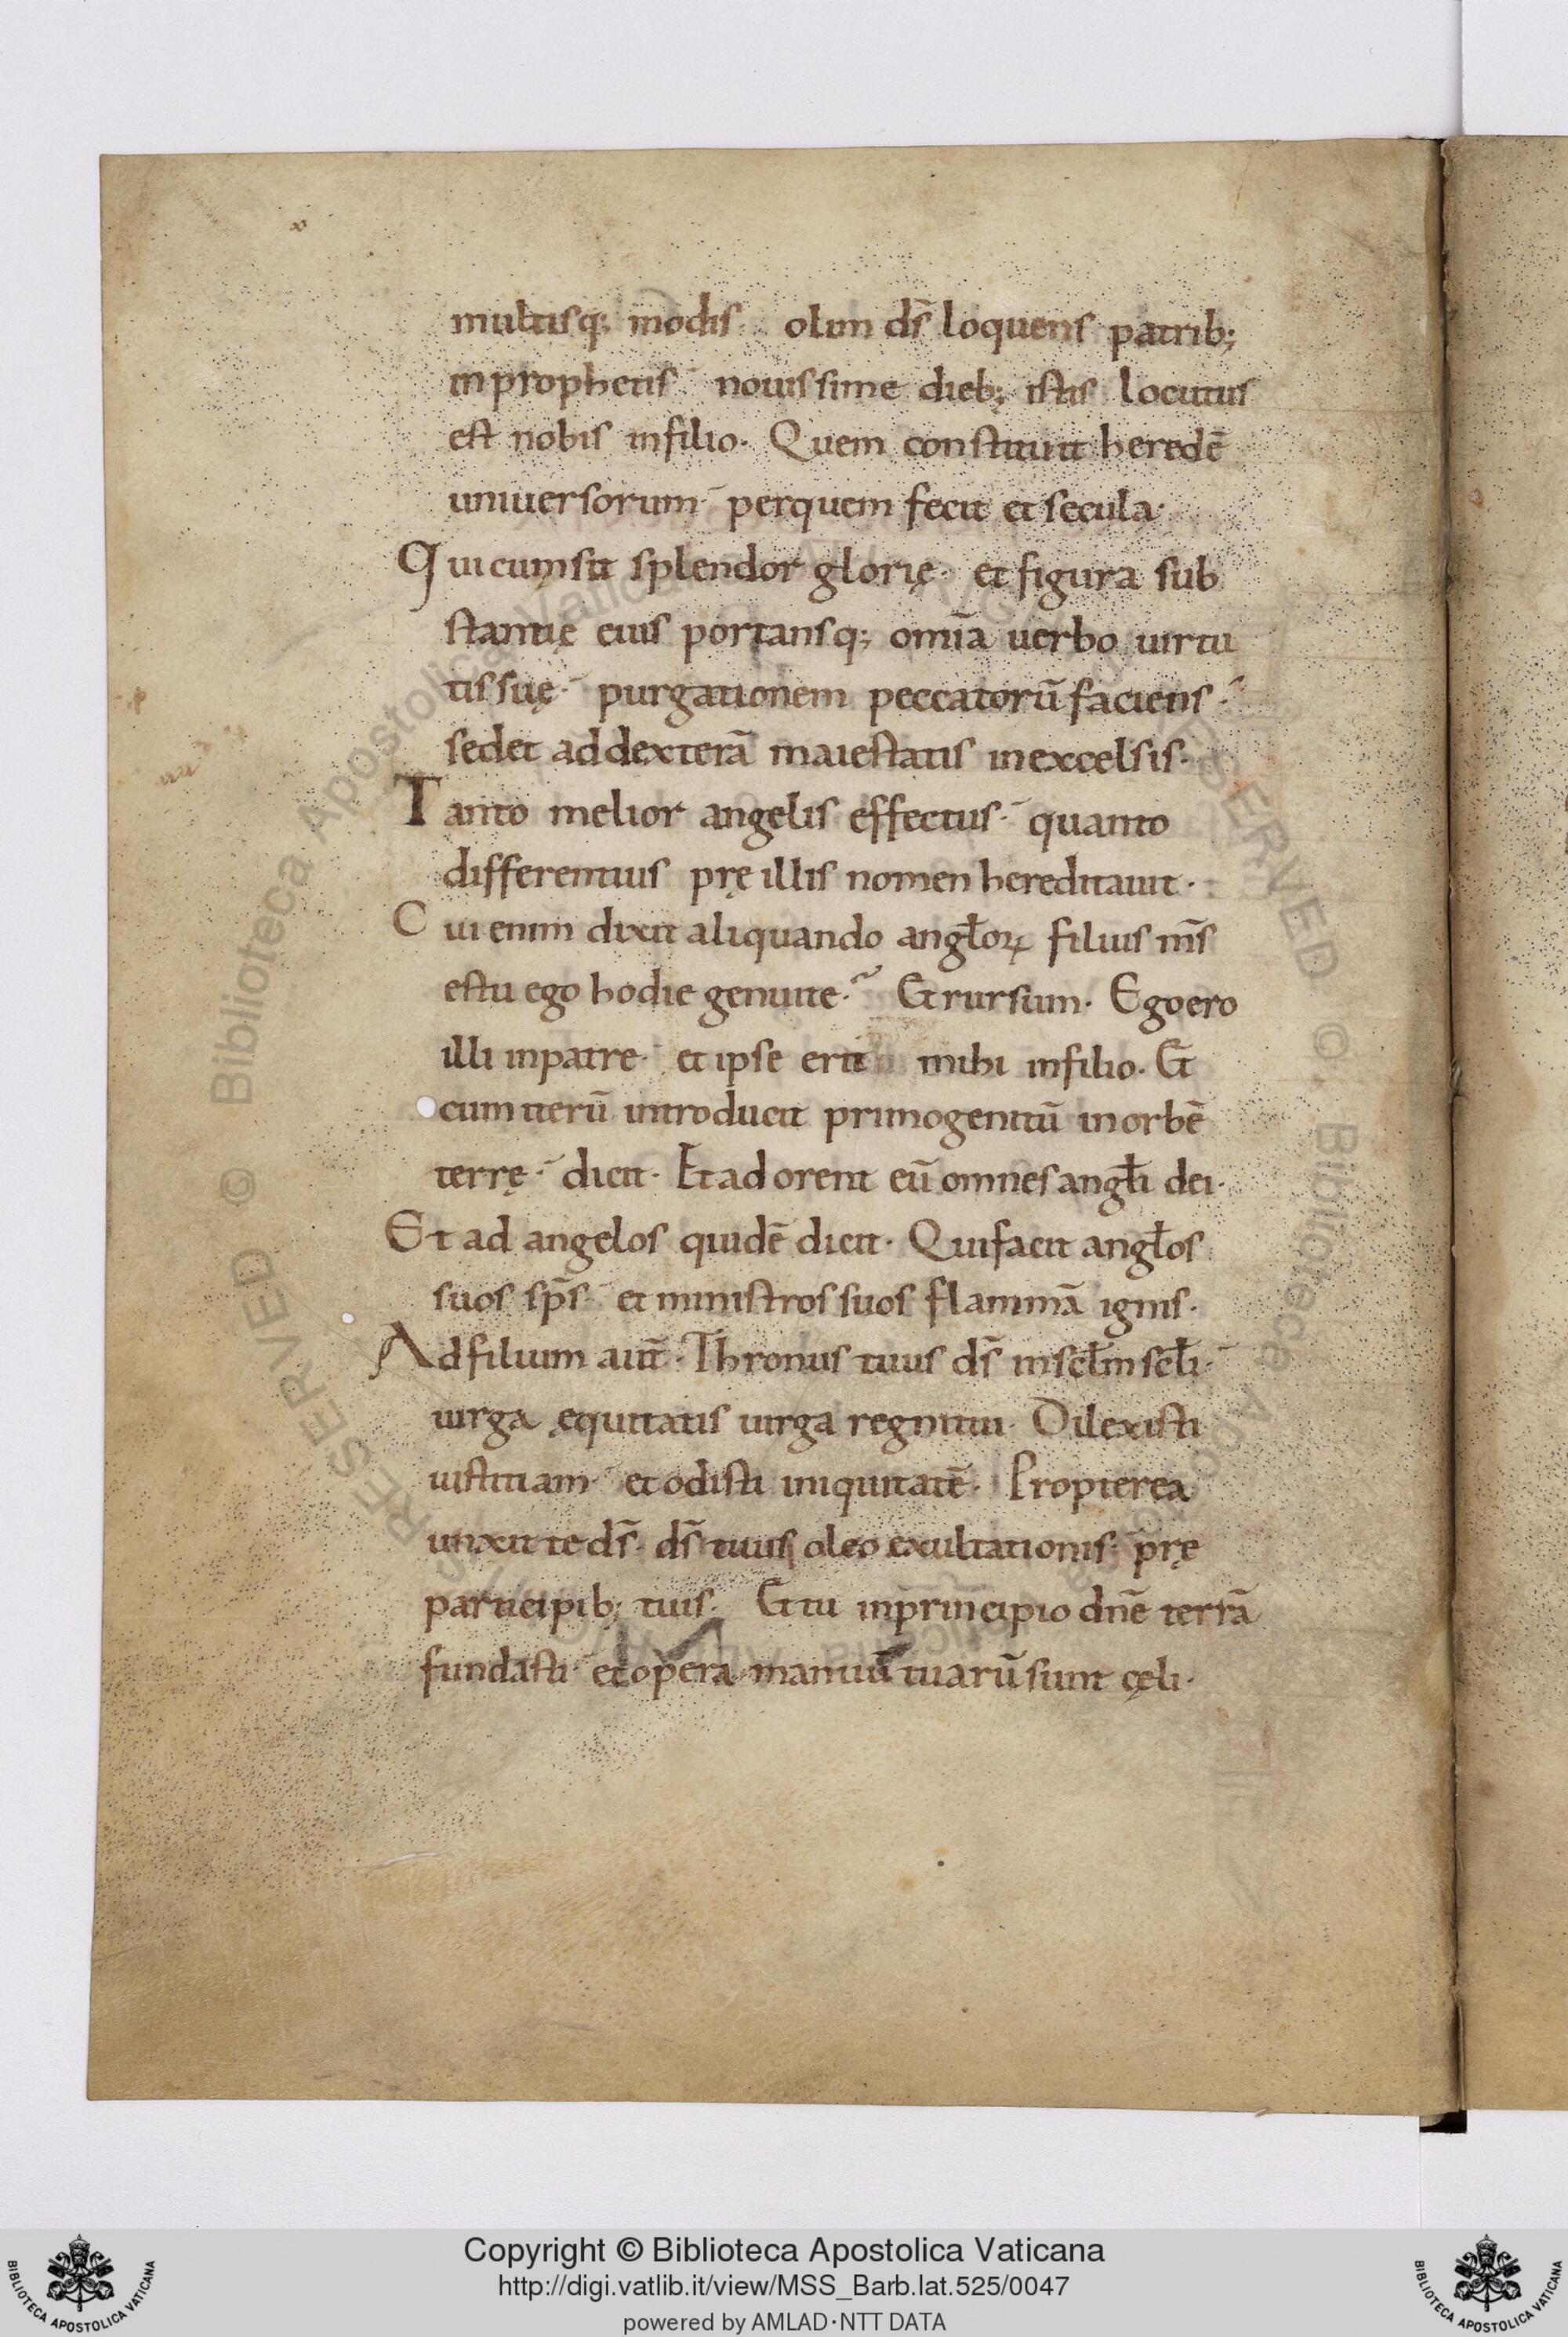 multisq; modis· olim ds̄ loquens patrib;
inprophetis· nouissime dieb; istis locutus
est nobis infilio· Quem constituit heredē
uniuersorum· perquem fecit et secula·
Qui cumsit splendor glorię· et figura sub
stantię eius portansq; omīa uerbo uirtu
tis suę· purgationem peccatorū faciens·
sedet addexterā maiestatis inexcelsis·
Tanto melior angelis effectus· quanto
differentius prę illis nomen hereditauit·
Cui enim dixit aliquando angl̄oꝝ filius ms̄
estu ego hodie genuite· Et rursum· Ego ero
illi inpatre· et ipse erit mihi infilio· Et
cum iterū introducit primogenitū inorbē
terrę· dicit· Et adorent eū omnes angl̄i dei·
Et ad angelos quidē dicit· Qui facit angl̄os
suos sp̄s· et ministros suos flammā ignis·
Ad filium aut̄· Thronus tuus ds̄ inscl̄m scl̄i·
uirga ęquitatis uirga regni tui· Dilexisti
iustitiam· et odisti iniquitatē· Propterea
unxit te ds̄· ds̄ tuus oleo exultationis· prę
participib; tuis· Et tu inprincipio dn̄e terrā
fundasti· et opera manuū tuarū sunt cęli·
Copyright © Biblioteca Apostolica Vaticana
http://digi.vatlib.it/view/MSS_Barb.lat.525/0047
powered by AMLAD·NTT DATA
BIBLIOTECA APOSTOLICA VATICANA
BIBLIOTECA APOSTOLICA VATICANA